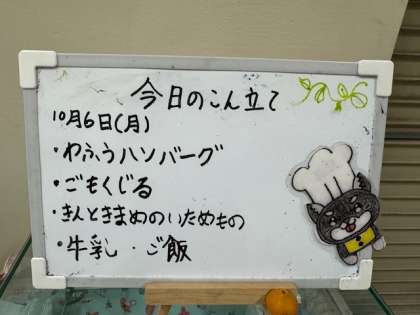 今日のこん立て
10月6日(月)
・わふうハンバーグ
・ごもくじる
・きんときまめのいためもの
・牛乳 ・ご飯